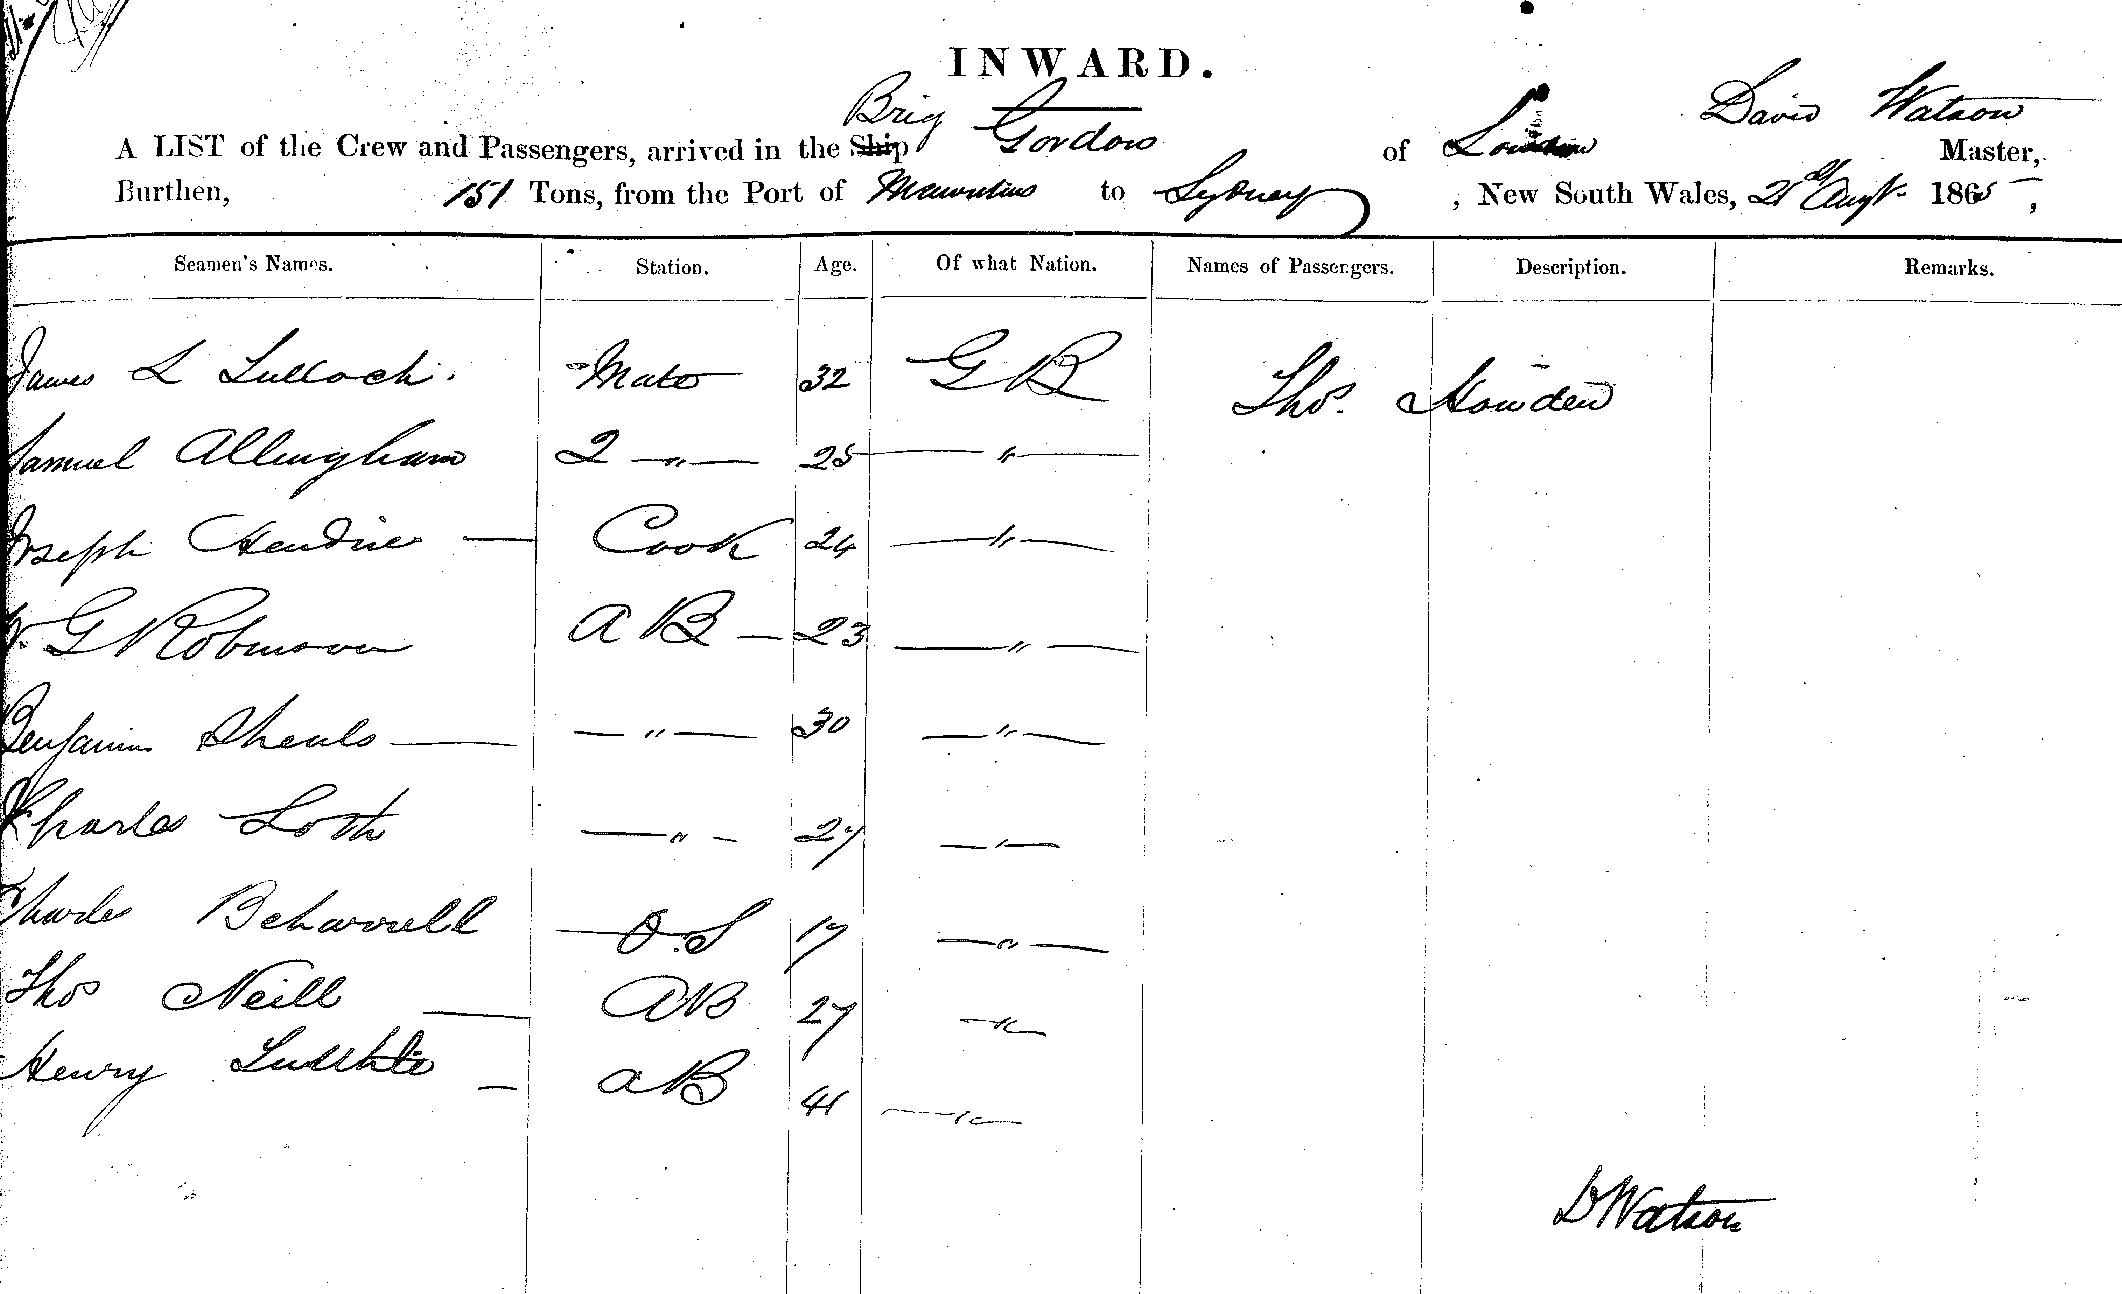 INWARD.
Brig Gordon David Watson
A LIST of the Crew and Passengers, arrived in the Ship of London Master,
Burthen, 151 Tons, from the Port of Mauritius to Sydney, New South Wales, 21st Augt. 1865,
Seamen's Names. Station. Age. Of what Nation. Names of Passengers. Description. Remarks.
James L Tulloch. Mate 32 G B Thos. Howden
Samuel Allingham 2 —"— 25 —"—
Joseph Cook 24 —"—
W. G Robinson A B — 23 —"—
Benjamin —"— 30 —"—
Charles Loth —"— 27 —"—
Charles Beharrell O.S 17 —"—
Thos Neill — AB 27 —"—
Henry — AB 41 —"—
D Watson